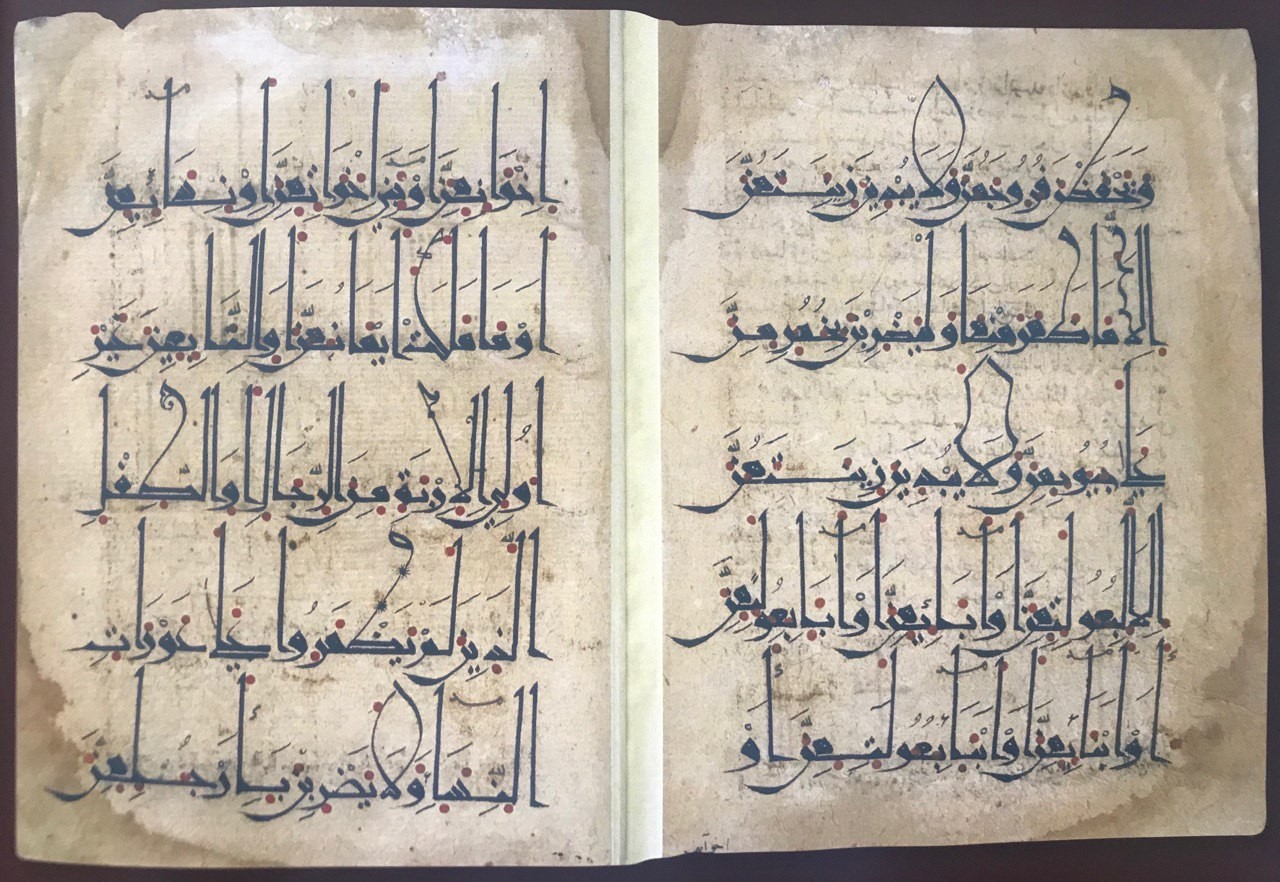 ويحفظن فروجهن ولا يبدين زينتهن
الا ما ظهر منها وليضربن بخمرهن
على جيوبهن ولا يبدين زينتهن
الا لبعولتهن او ابائهن او ابا بعولتهن
او ابنائهن او ابنا بعولتهن او
اخوانهن او بني اخواتهن او نسائهن
او ما ملكت ايمانهن والتابعين غير
اولي الاربة من الرجال او الطفل
الذين لم يظهروا على عورات
النساء ولا يضربن بارجلهن